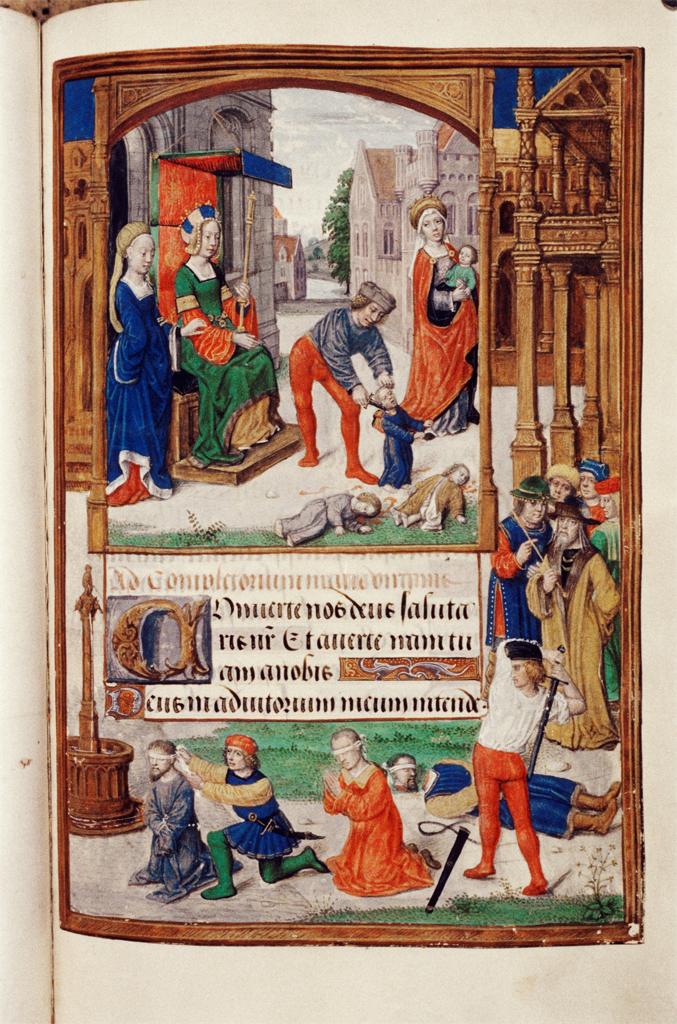 Ad Completorium marie virginis
COnuerte nos deus saluta
ris nr̄ Et auerte iram tu
am anobis
Deus in adiutorium meum intende